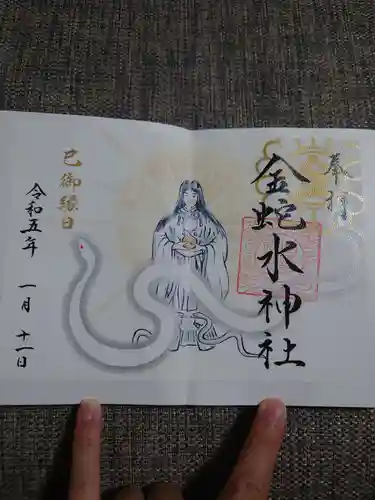 奉拝
金蛇水神社
巳御縁日
令和五年 一月 十一日